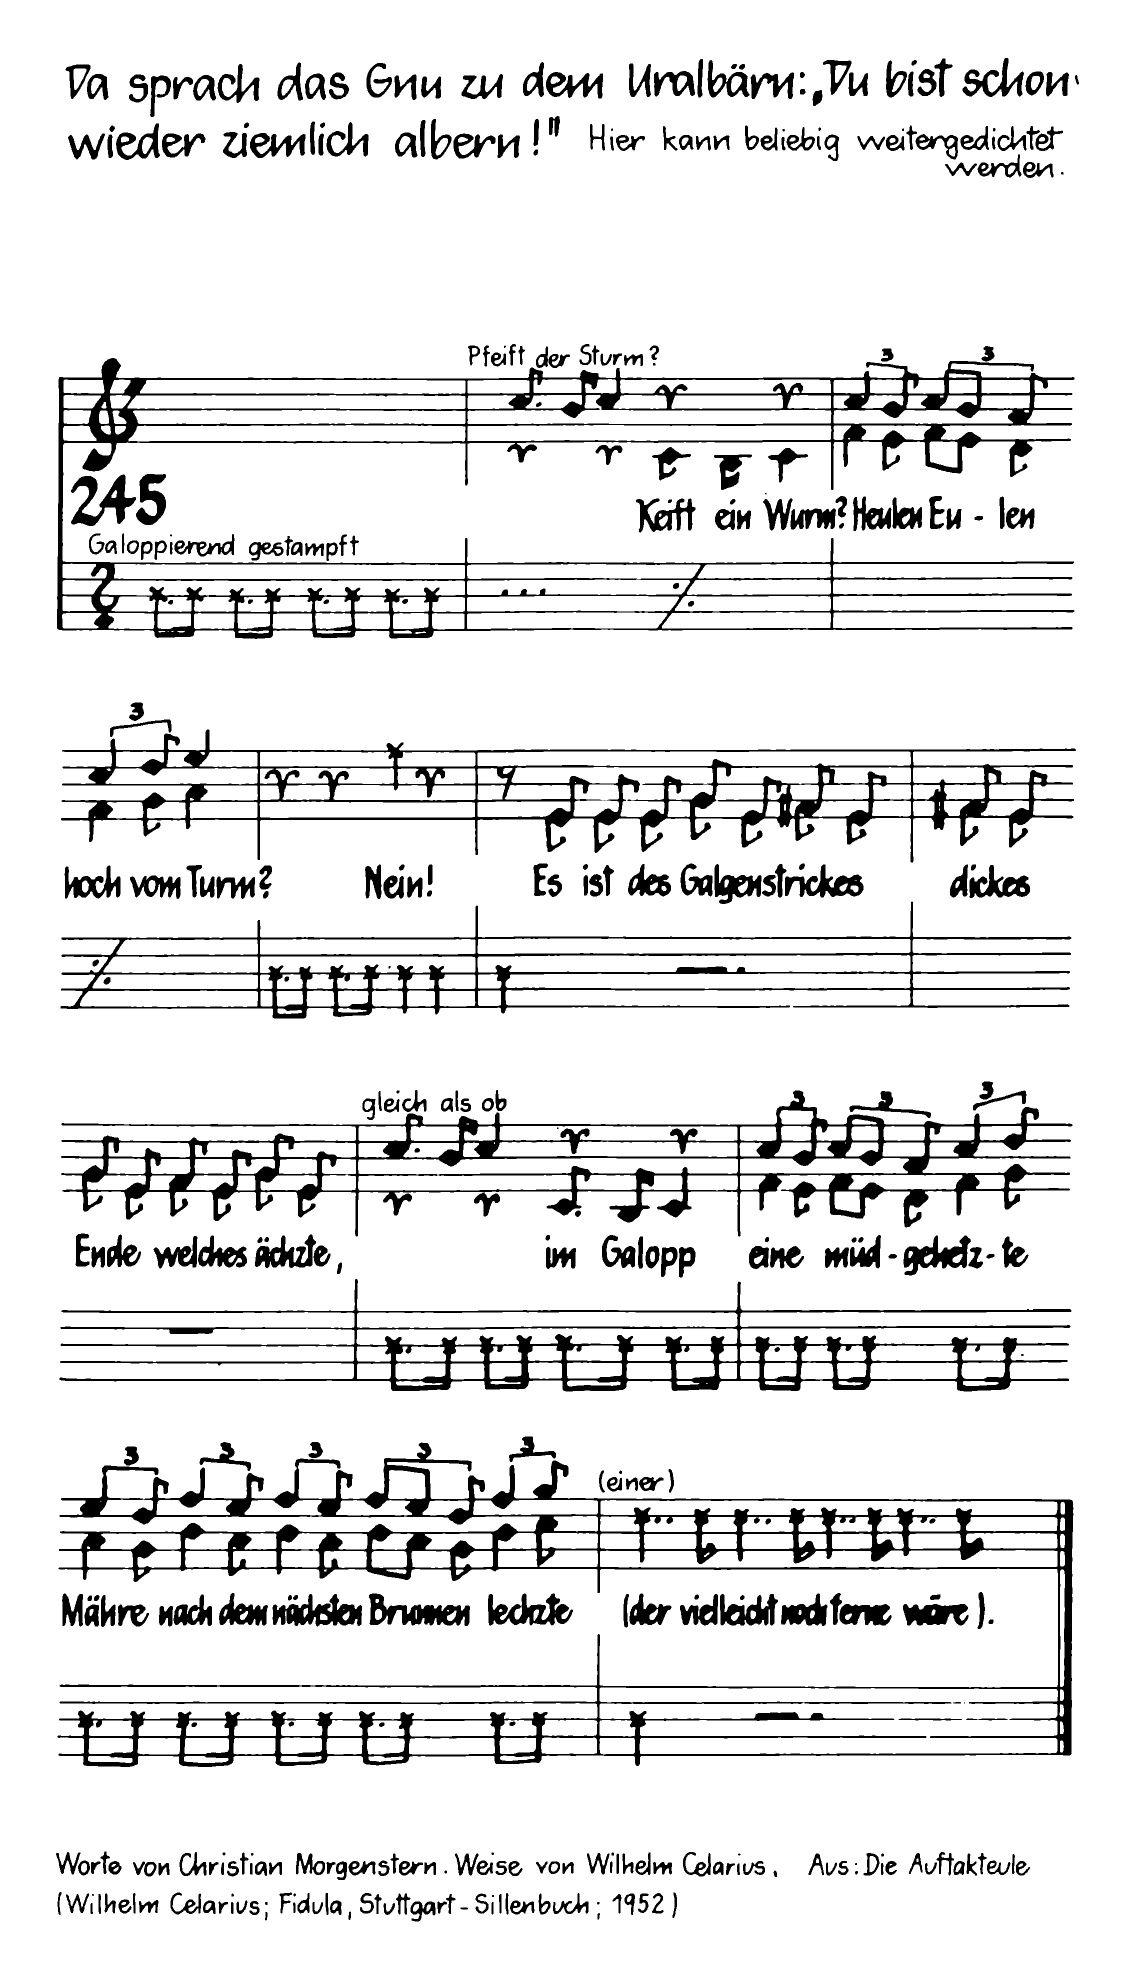 Da sprach das Gnu zu dem Uralbärn: „Du bist schon
wieder ziemlich albern!" Hier kann beliebig weitergedichtet
werden.
Pfeift der Sturm?
3 3
245
Keift ein Wurm? Heulen Eu - len
Galoppierend gestampft
3
hoch vom Turm? Nein! Es ist des Galgenstrickes dickes
gleich als ob
3 3 3
Ende welches ächzte, im Galopp eine müd - gehetz - te
3 3 3 3 3
(einer)
Mähre nach dem nächsten Brunnen lechzte (der vielleicht noch ferne wäre).
Worte von Christian Morgenstern. Weise von Wilhelm Celarius. Aus: Die Auftakteule
(Wilhelm Celarius; Fidula, Stuttgart - Sillenbuch; 1952)